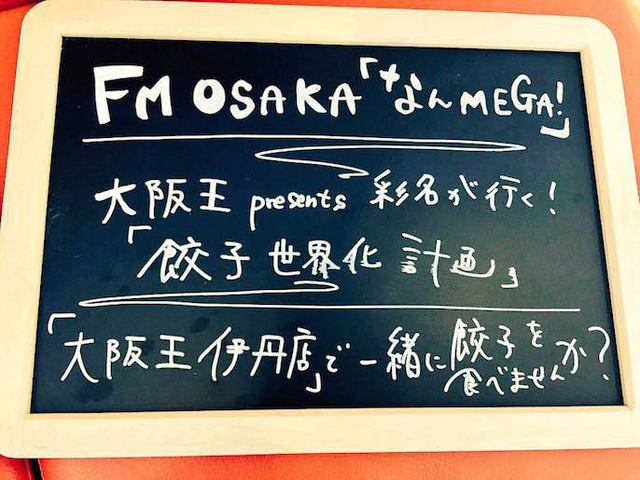 FM OSAKA「なんMEGA!」
大阪王 presents 彩名が行く!
「餃子 世界化 計画」
「大阪王 伊丹店」で 一緒に餃子を食べませんか?